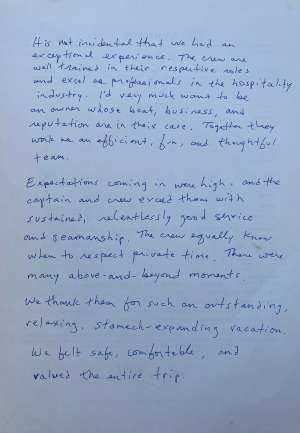 It is not incidental that we had an
exceptional experience. The crew are
well trained in their respective roles
and excel as professionals in the hospitality
industry. I'd very much want to be
an owner whose boat, business, and
reputation are in their care. Together they
work as an efficient, fun, and thoughtful
team.
Expectations coming in were high, and the
captain and crew exceed them with
sustained, relentlessly good service
and seamanship. The crew equally know
when to respect private time. There were
many above-and-beyond moments.
We thank them for such an outstanding,
relaxing, stomach-expanding vacation.
We felt safe, comfortable, and
valued the entire trip.